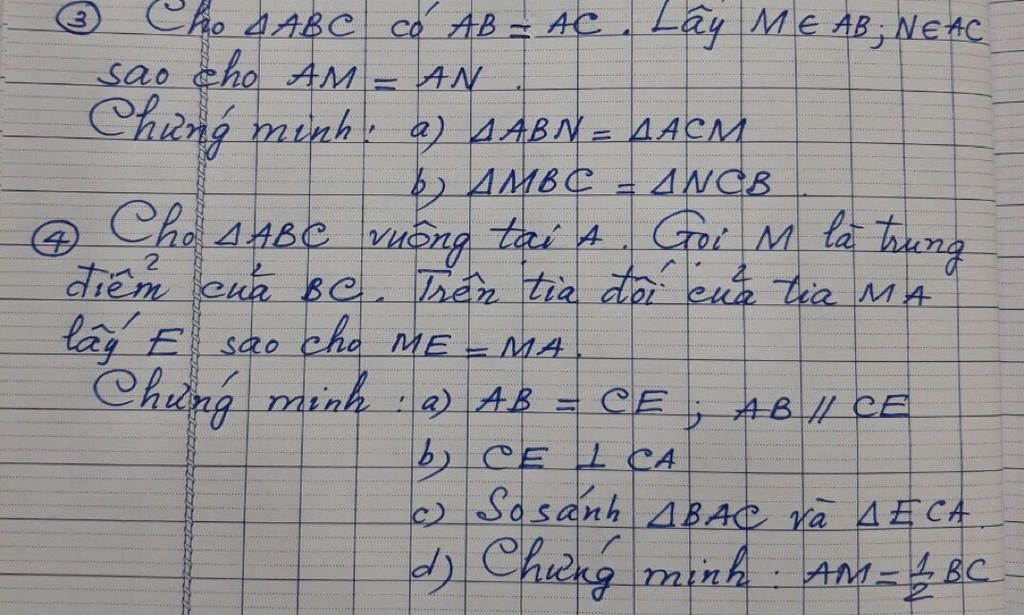 ③ Cho ΔABC có AB = AC. Lấy M ∈ AB; N ∈ AC
sao cho AM = AN.
Chứng minh: a) ΔABN = ΔACM
b) ΔMBC = ΔNCB.
④ Cho ΔABC vuông tại A. Gọi M là trung
điểm của BC. Trên tia đối của tia MA
lấy E sao cho ME = MA.
Chứng minh: a) AB = CE; AB // CE
b) CE ⊥ CA
c) So sánh ΔBAC và ΔECA.
d) Chứng minh: AM = 1/2 BC